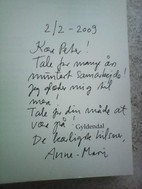 2/2-2009
Kære Peter!
Tak for mange års
muntert samarbejde!
Jeg glæder mig til
mere!
Tak for din måde at
være på!
Gyldendal
De kærligste hilsner,
Anne-Marie